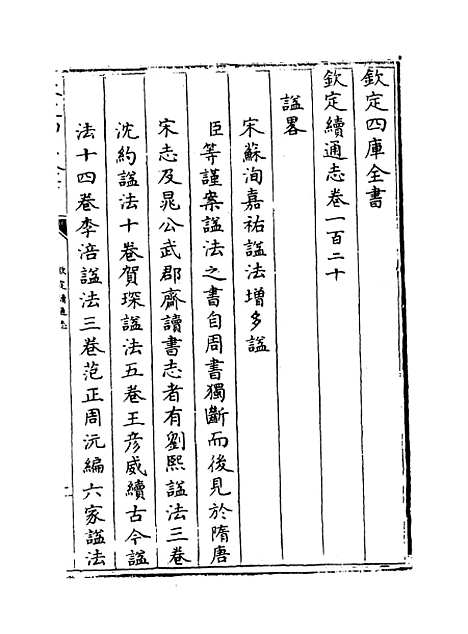 欽定四庫全書
欽定續通志卷一百二十
諡畧
宋蘇洵嘉祐諡法增多諡
臣等謹案諡法之書自周書獨斷而後見於隋唐
宋志及晁公武郡齋讀書志者有劉熙諡法三卷
沈約諡法十卷賀琛諡法五卷王彦威續古今諡
法十四卷李涪諡法三卷范正周沆編六家諡法
欽定續通志